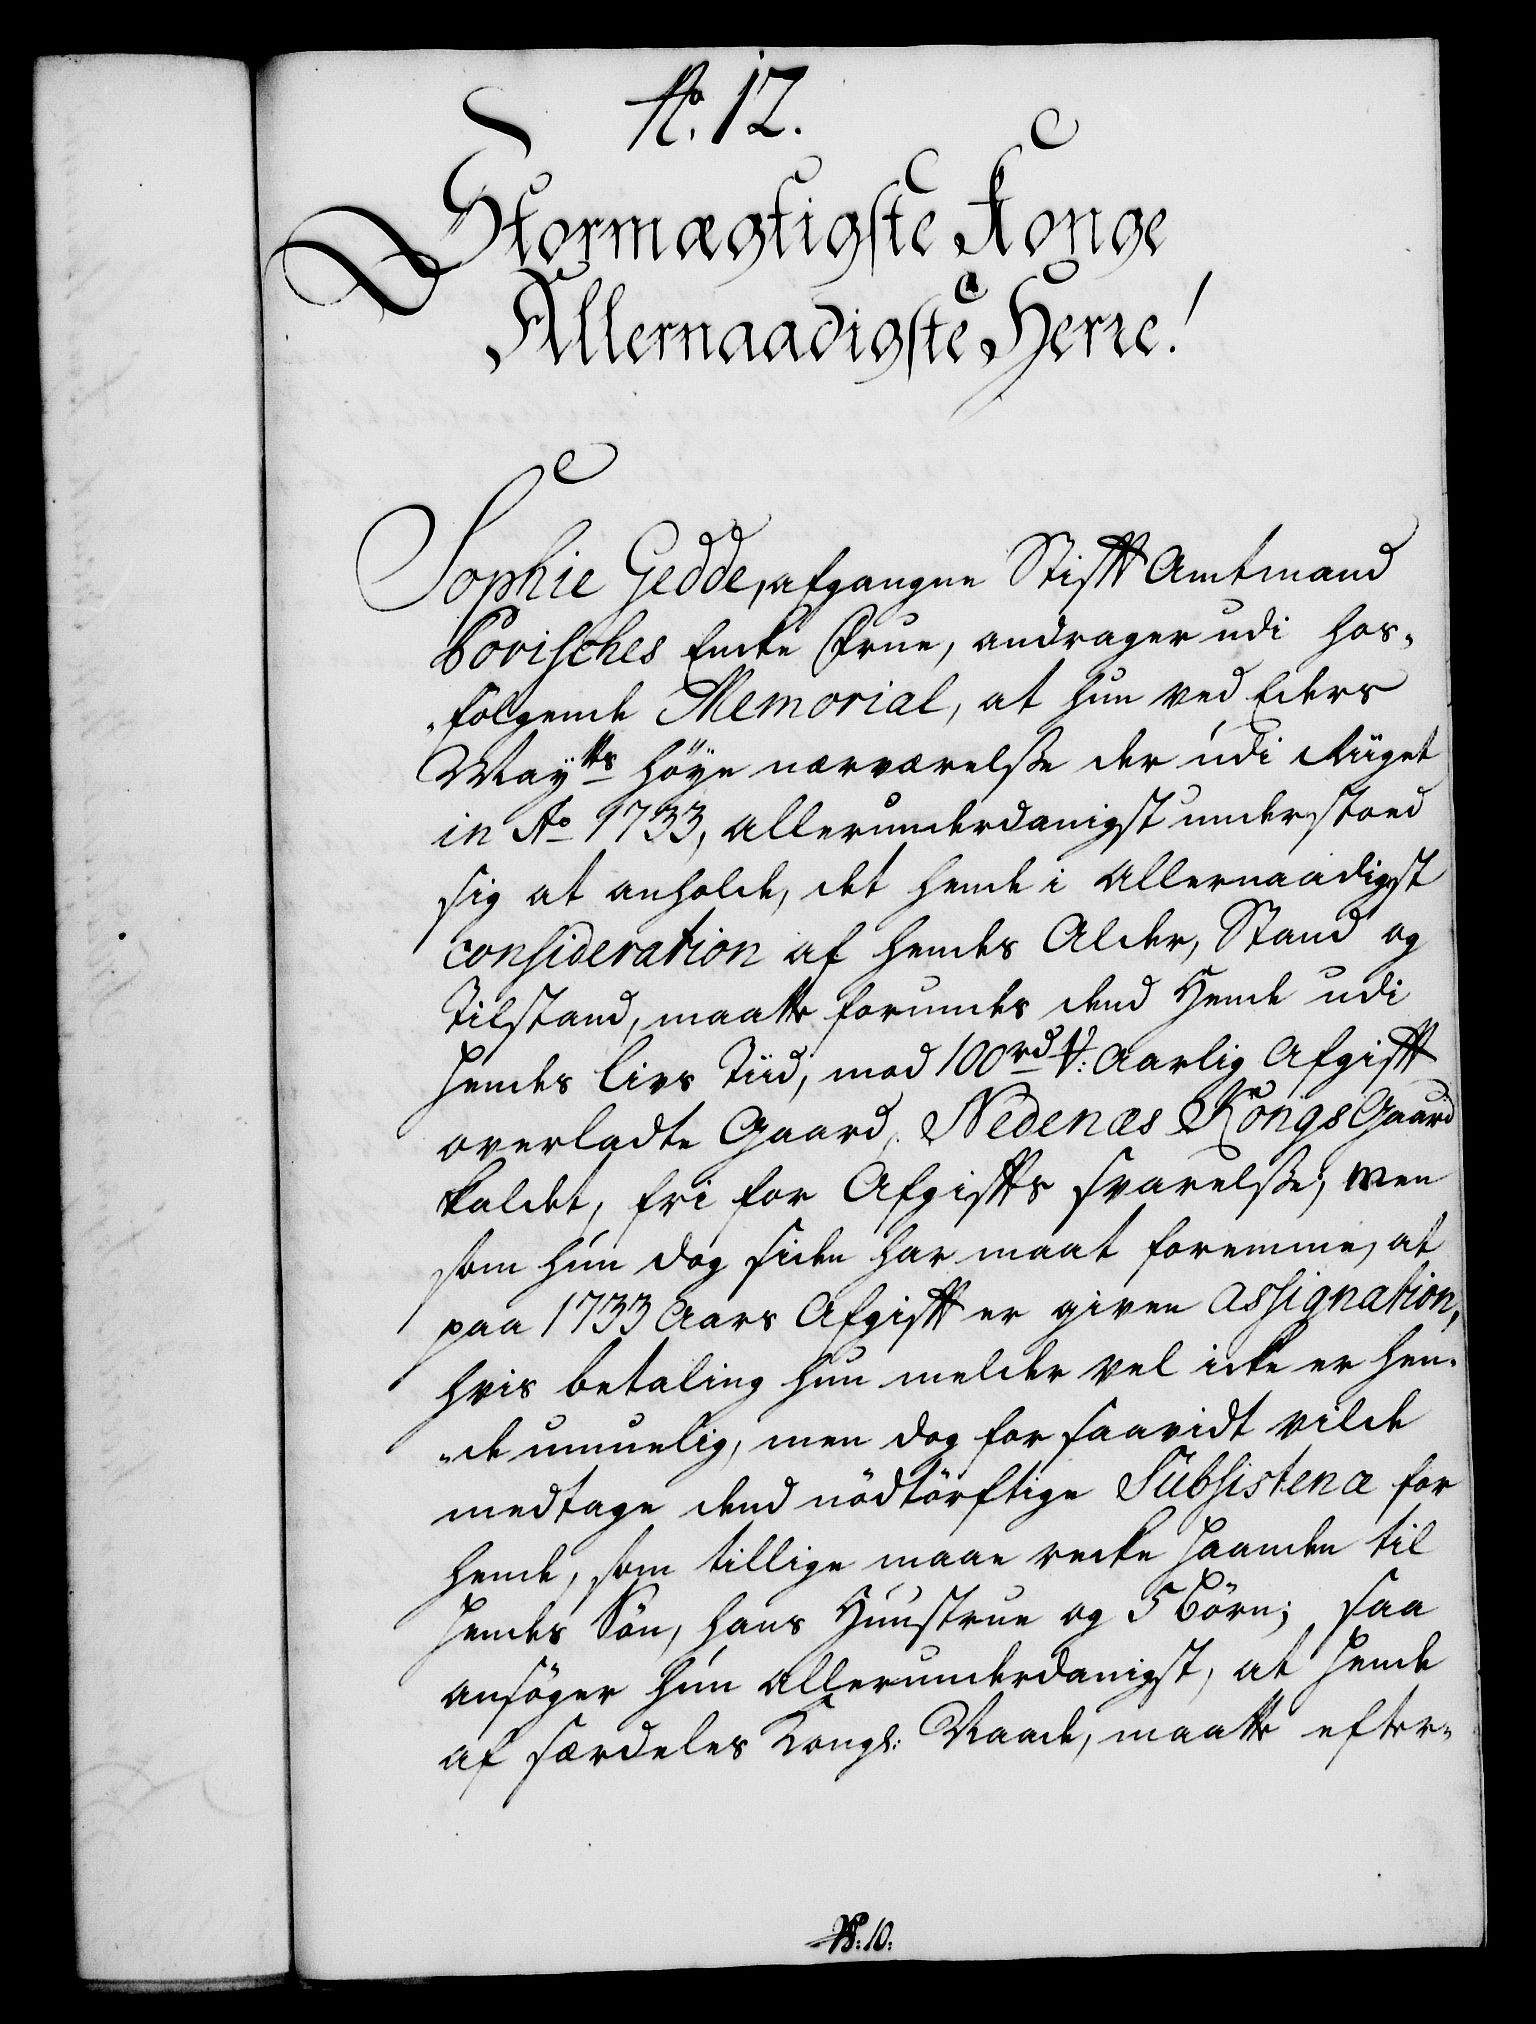 No. 12.
Stormægtigste Konge
Allernaadigste Herre!
Sophie Gedde, afgangne Stifft Amtmand
Povisches Encke Frue, andrager udi hos-
-folgende Memorial, at hun ved Eders
Maytts höye nærværelsse der udi Riiget
in Ao 1733, allerunderdanigst understoed
sig at anholde, det hende i allernaadigst
consideration af hendes Alder, Stand og
Tilstand, maatte forundes dend Hende udi
Hendes Livs Tiid, mod 100 rd aarlig Afgifft
overladte Gaard, Nedenæs KongsGaard
kaldet, fri for Afgiffts svarelsse; men
som hun dog siden har maat fornemme, at
paa 1733 Aars Afgifft er given assignation,
hvis betaling hun melder vel icke er hen-
-de umuelig, men dog for saavidt vilde
medtage dend nödtörftige Subsistence for
hende, som tillige maae recke Haanden til
Hendes Sön, hans Huustrue og 5 Börn; saa
ansöger hun allerunderdanigst, at Hende
af særdeles Kongl: Naade, maatte efter-
No: 10: